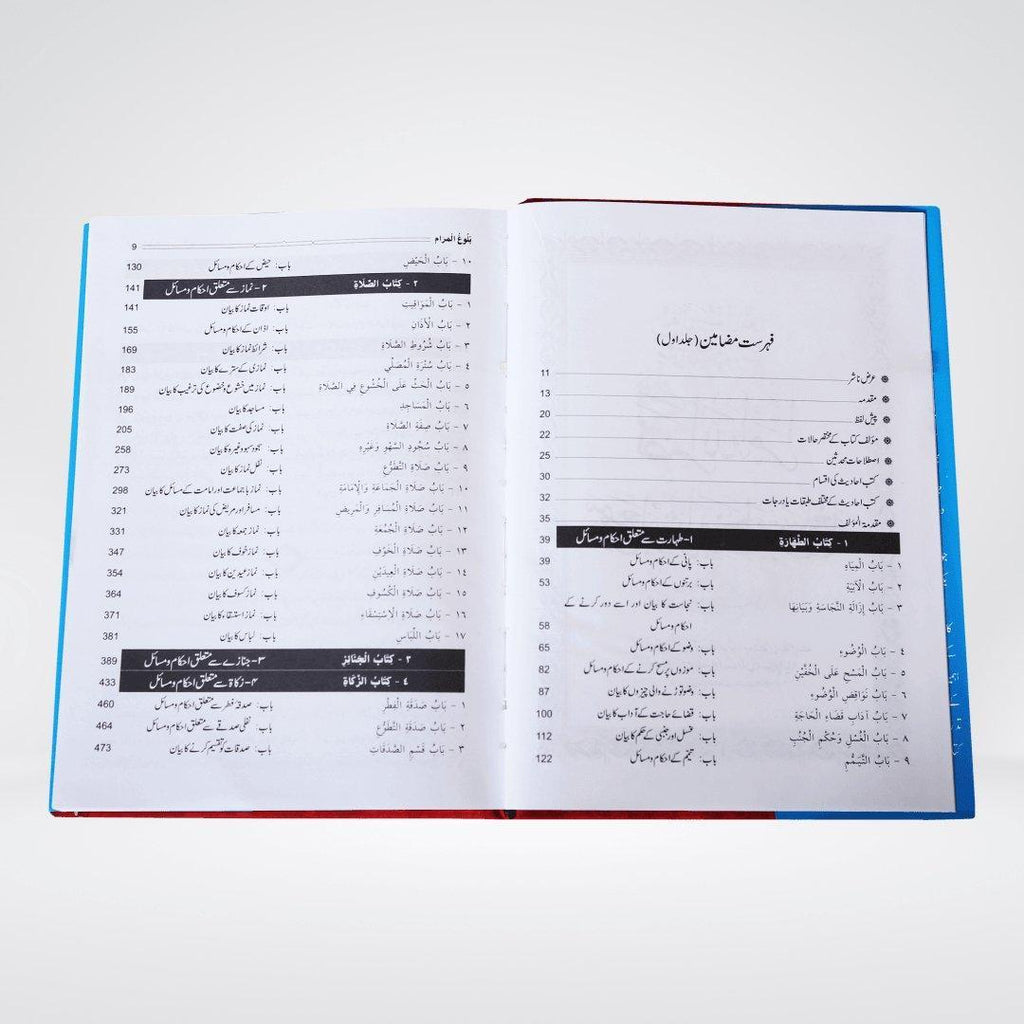 فہرست مضامین (جلد اول)
عرض ناشر 11
مقدمہ 13
پیش لفظ 20
مؤلف کتاب کے مختصر حالات 22
اصطلاحات محدثین 25
کتب احادیث کی اقسام 30
کتب احادیث کے مختلف طبقات یا درجات 32
مقدمۃ المؤلف 35
١ - كِتَابُ الطَّهَارَةِ ۱- طہارت سے متعلق احکام و مسائل 39
١ - بَابُ الْمِيَاهِ باب: پانی کے احکام و مسائل 39
٢ - بَابُ الْآنِيَةِ باب: برتنوں کے احکام و مسائل 53
٣ - بَابُ إِزَالَةِ النَّجَاسَةِ وَبَيَانِهَا باب: نجاست کا بیان اور اسے دور کرنے کے
احکام و مسائل 58
٤ - بَابُ الْوُضُوءِ باب: وضو کے احکام و مسائل 65
٥ - بَابُ الْمَسْحِ عَلَى الْخُفَّيْنِ باب: موزوں پر مسح کرنے کے احکام و مسائل 82
٦ - بَابُ نَوَاقِضِ الْوُضُوءِ باب: وضو توڑنے والی چیزوں کا بیان 87
٧ - بَابُ آدَابِ قَضَاءِ الْحَاجَةِ باب: قضائے حاجت کے آداب کا بیان 100
٨ - بَابُ الْغُسْلِ وَحُكْمِ الْجُنُبِ باب: غسل اور جنبی کے حکم کا بیان 112
٩ - بَابُ التَّيَمُّمِ باب: تیمم کے احکام و مسائل 122
بُلُوغُ الْمَرَام 9
١٠ - بَابُ الْحَيْضِ باب: حیض کے احکام و مسائل 130
٢ - كِتَابُ الصَّلَاةِ ۲- نماز سے متعلق احکام و مسائل 141
١ - بَابُ الْمَوَاقِيتِ باب: اوقات نماز کا بیان 141
٢ - بَابُ الْأَذَانِ باب: اذان کے احکام و مسائل 155
٣ - بَابُ شُرُوطِ الصَّلَاةِ باب: شرائط نماز کا بیان 169
٤ - بَابُ سُتْرَةِ الْمُصَلِّي باب: نمازی کے سترے کا بیان 183
٥ - بَابُ الْحَثِّ عَلَى الْخُشُوعِ فِي الصَّلَاةِ باب: نماز میں خشوع و خضوع کی ترغیب کا بیان 189
٦ - بَابُ الْمَسَاجِدِ باب: مساجد کا بیان 196
٧ - بَابُ صِفَةِ الصَّلَاةِ باب: نماز کی صفت کا بیان 205
٨ - بَابُ سُجُودِ السَّهْوِ وَغَيْرِهِ باب: سجود سہو وغیرہ کا بیان 258
٩ - بَابُ صَلَاةِ التَّطَوُّعِ باب: نفل نماز کا بیان 273
١٠ - بَابُ صَلَاةِ الْجَمَاعَةِ وَالْإِمَامَةِ باب: نماز با جماعت اور امامت کے مسائل کا بیان 298
١١ - بَابُ صَلَاةِ الْمُسَافِرِ وَالْمَرِيضِ باب: مسافر اور مریض کی نماز کا بیان 321
١٢ - بَابُ صَلَاةِ الْجُمُعَةِ باب: نماز جمعہ کا بیان 331
١٣ - بَابُ صَلَاةِ الْخَوْفِ باب: نماز خوف کا بیان 347
١٤ - بَابُ صَلَاةِ الْعِيدَيْنِ باب: نماز عیدین کا بیان 354
١٥ - بَابُ صَلَاةِ الْكُسُوفِ باب: نماز کسوف کا بیان 364
١٦ - بَابُ صَلَاةِ الْاِسْتِسْقَاءِ باب: نماز استسقاء کا بیان 371
١٧ - بَابُ اللِّبَاسِ باب: لباس کا بیان 381
٣ - كِتَابُ الْجَنَائِزِ ۳- جنازے سے متعلق احکام و مسائل 389
٤ - كِتَابُ الزَّكَاةِ ۴- زکاۃ سے متعلق احکام و مسائل 433
١ - بَابُ صَدَقَةِ الْفِطْرِ باب: صدقۂ فطر سے متعلق احکام و مسائل 460
٢ - بَابُ صَدَقَةِ التَّطَوُّعِ باب: نفلی صدقے سے متعلق احکام و مسائل 464
٣ - بَابُ قَسْمِ الصَّدَقَاتِ باب: صدقات کو تقسیم کرنے کا بیان 473